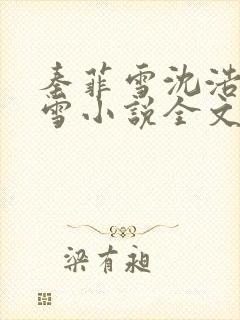 秦菲雪沈浩
雪小说全文
梁有昶